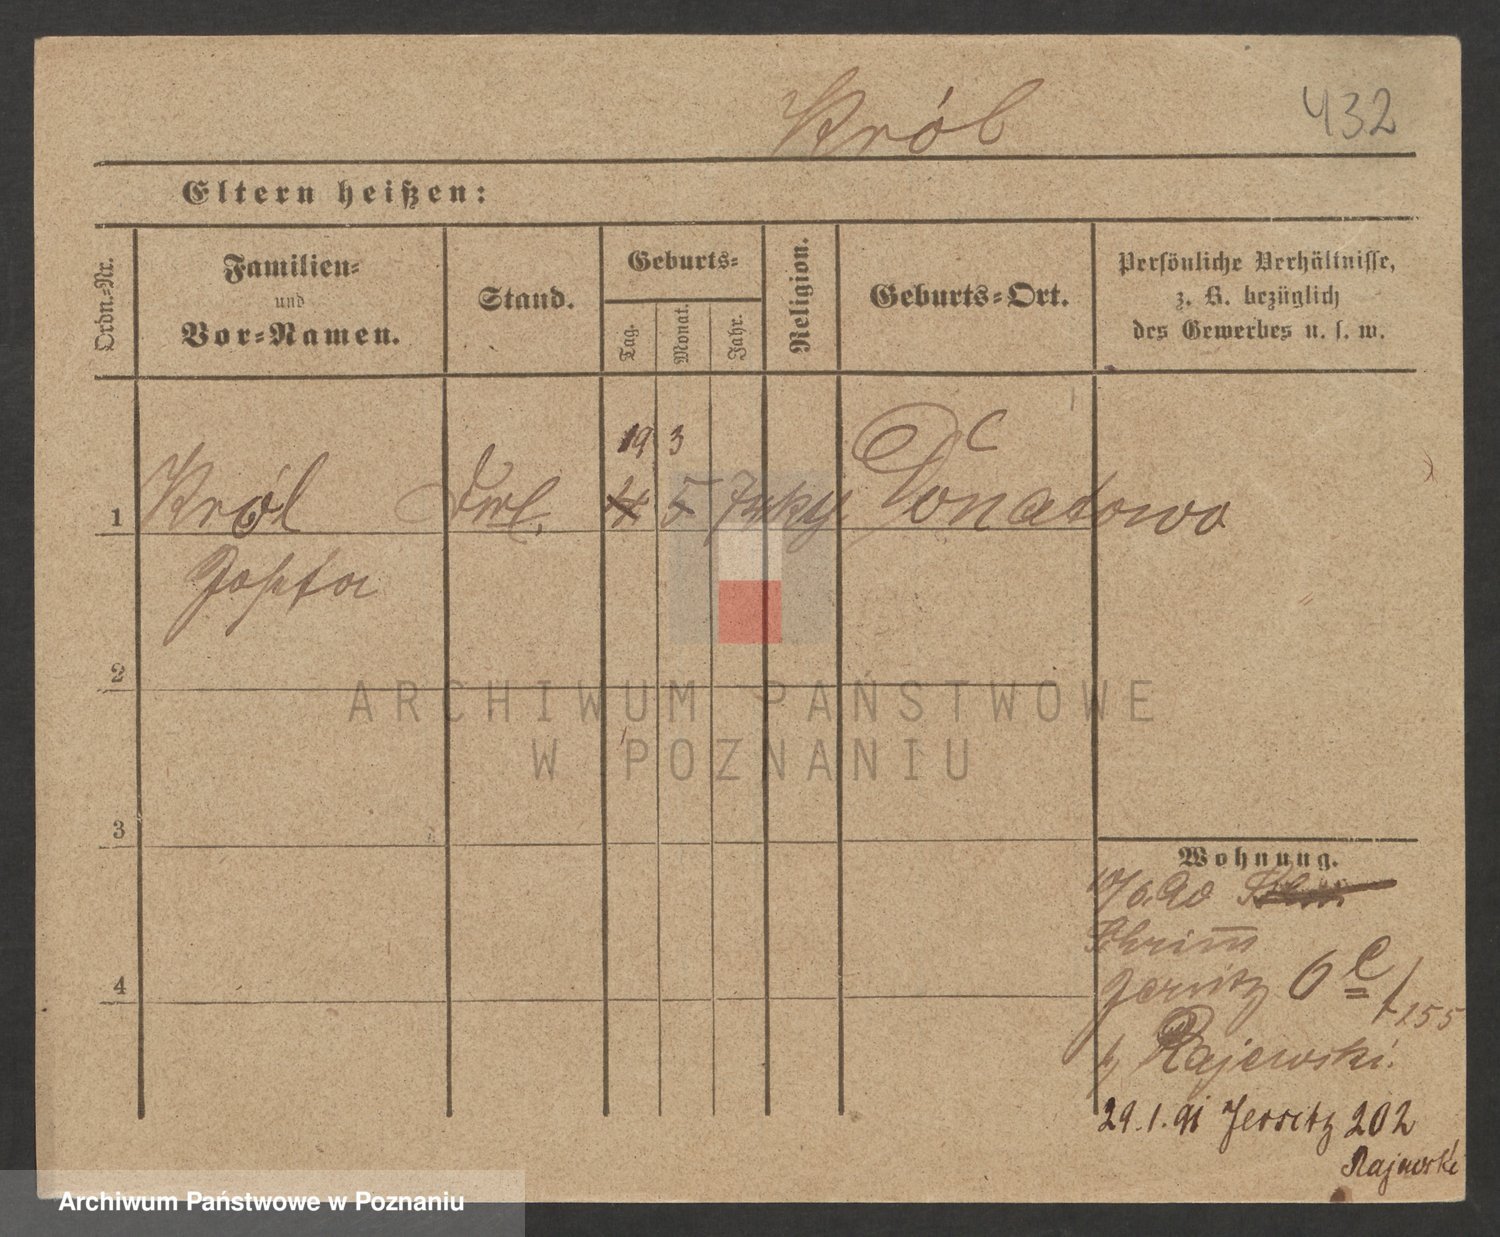 Król 432
Eltern heißen:
Ordn.-Nr.
Familien-
und
Vor-Namen.
Stand.
Geburts-
Tag.
Monat.
Jahr.
Religion.
Geburts-Ort.
Persönliche Verhältnisse,
z. B. bezüglich
des Gewerbes u. s. w.
19 3
1 Król 4 5 Donatowo
Josefa
2
3
4
Wohnung.
Schrimm
Jersitz 6 c/255
Rajewski.
29.1.91 Jersitz 202
Rajewski
ARCHIWUM PAŃSTWOWE
W POZNANIU
Archiwum Państwowe w Poznaniu